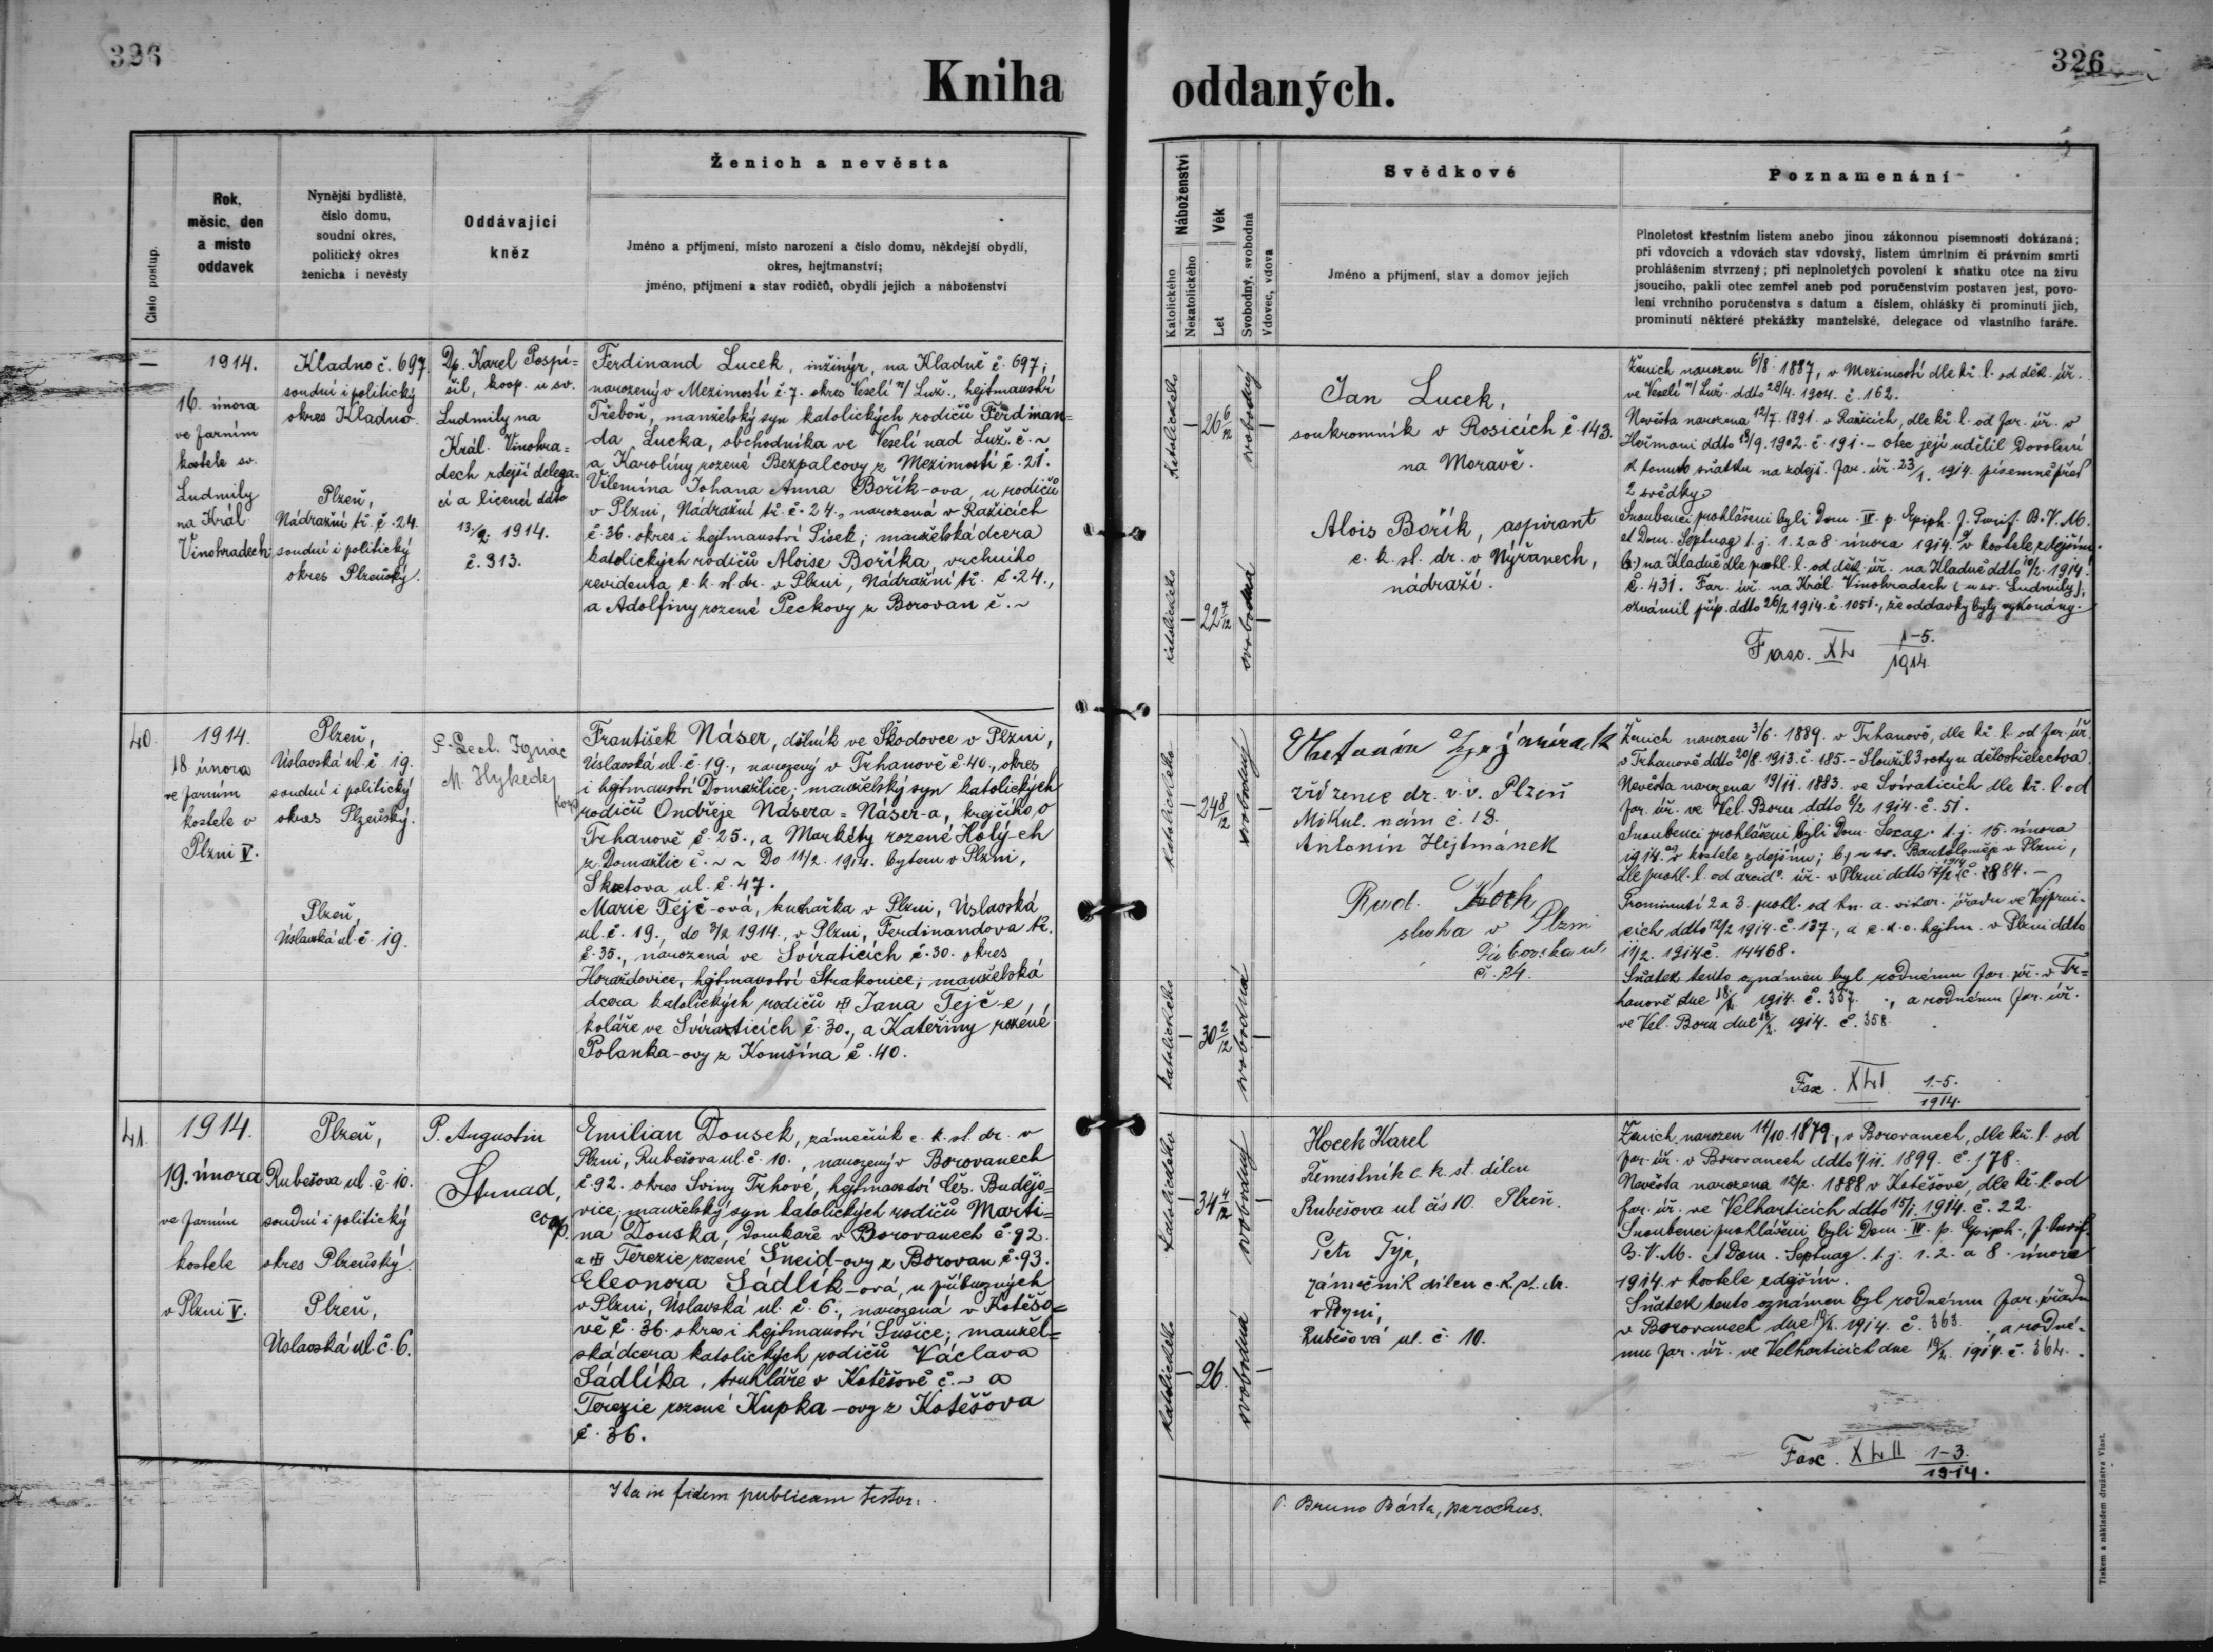 326
326
Kniha
oddaných.
Číslo postup.
Rok,
měsíc, den
a místo
oddavek
Nynější bydliště,
číslo domu,
soudní okres,
politický okres
ženicha i nevěsty
Oddávající
kněz
Ženich a nevěsta
Jméno a příjmení, místo narození a číslo domu, někdejší obydlí,
okres, hejtmanství;
jméno, příjmení a stav rodičů, obydlí jejich a náboženství
Náboženství
Katolického
Nekatolického
Věk
Let
Svobodný, svobodná
Vdovec, vdova
Svědkové
Jméno a příjmení, stav a domov jejich
Poznamenání
Plnoletost křestním listem anebo jinou zákonnou písemností dokázaná;
při vdovcích a vdovách stav vdovský, listem úmrtním či právním smrti
prohlášením stvrzený; při neplnoletých povolení k sňatku otce na živu
jsoucího, pakli otec zemřel aneb pod poručenstvím postaven jest, povo-
lení vrchního poručenstva s datum a číslem, ohlášky či prominutí jich,
prominutí některé překážky manželské, delegace od vlastního faráře.
—
1914.
16. února
ve farním
kostele sv.
Ludmily
na Král.
Vinohradech
Kladno č. 697.
soudní i politický
okres Kladno.
Plzeň,
Nádražní tř. č. 24.
soudní i politický
okres Plzeňský.
Dp. Karel Pospí=
šil, koop. u sv.
Ludmily na
Král. Vinohra=
dech zdejší delega=
cí a licencí ddto
13./2. 1914.
č. 313.
Ferdinand Lucek, inžinýr, na Kladně č. 697;
narozený v Mezimostí č. 7. okres Veselí n/ Luž., hejtmanství
Třeboň, manželský syn katolických rodičů Ferdinan=
da Lucka, obchodníka ve Veselí nad Luž. č. ~
a Karolíny rozené Bezpalcovy z Mezimostí č. 21.
Vilemína Johana Anna Bořík-ova, u rodičů
v Plzni, Nádražní tř. č. 24., narozená v Ražicích
č. 36. okres i hejtmanství Písek; manželská dcera
katolických rodičů Aloise Boříka, vrchního
revidenta c. k. st. dr. v Plzni, Nádražní tř. č. 24.,
a Adolfiny rozené Peckovy z Borovan č. ~
katolického
26 6/12
svobodný
katolického
22 7/12
svobodná
Jan Lucek,
soukromník v Rosicích č. 143.
na Moravě.
Alois Bořík, aspirant
c. k. st. dr. v Nýřanech,
nádraží.
Ženich narozen 6/8 1887, v Mezimostí dle kř. l. od děk. úř.
ve Veselí n/ Luž. ddto 28/4. 1904. č. 162.
Nevěsta narozena 12/7. 1891. v Ražicích, dle kř. l. od far. úř. v
Heřmani ddto 13/9. 1902. č. 191. – otec její udělil Dovolení
k tomuto sňatku na zdejš. far. úř. 23/1. 1914. písemně před
2 svědky.
Snoubenci prohlášeni byli Dom. IV. p. Epiph. f. Purif. B. V. M.
et Dom. Septuag t. j. 1. 2 a 8. února 1914. v kostele zdejším.
b.) na Kladně dle prohl. l. od děk. úř. na Kladně ddto 10/2. 1914.
č. 431. Far. úř. na Král. Vinohradech (u sv. Ludmily),
oznámil příp. ddto 26/2 1914. č. 1051., že oddavky byly vykonány.
Fasc. XL 1-5. 1914.
40.
1914.
18. února
ve farním
kostele v
Plzni V.
Plzeň,
Úslavská ul. č. 19.
soudní i politický
okres Plzeňský.
Plzeň,
Úslavská ul. č. 19.
P. Lect. Ignác
M. Hykedej
koop
František Náser, dělník ve Škodovce v Plzni,
Úslavská ul. č. 19., narozený v Trhanově č. 40., okres
i hejtmanství Domažlice; manželský syn katolických
rodičů Ondřeje Násera = Náser-a, krejčího v
Trhanově č. 25., a Markéty rozené Holý-ch
z Domažlic č. ~ ~ Do 11/2. 1914. bytem v Plzni,
Skretova ul. č. 47.
Marie Tejč-ová, kuchařka v Plzni, Úslavská
ul. č. 19., do 3/2 1914., v Plzni, Ferdinandova tř.
č. 35., narozená ve Svíraticích č. 30. okres
Horažďovice, hejtmanství Strakonice; manželská
dcera katolických rodičů Jana Tejč-e,
koláře ve Svíraticích č. 30., a Kateřiny rozéné
Polanka-ovy z Komšína č. 40.
katolického
24 8/12
svobodný
katolického
30 2/12
svobodná
zřízenec dr. v. v. Plzeň
Mikul. nám č. 18.
Antonín Hejtmánek
Rud. Koch
sluha v Plzni
Táborská ul.
č. 24.
Ženich narozen 3/6. 1889. v Trhanově, dle kř. l. od far. úř.
v Trhanově ddto 20/8. 1913. č. 185. – Sloužil 3 roky u dělostřelectva.
Nevěsta narozena 19/11. 1883. ve Svíraticích dle kř. l. od
far. úř. ve Vel. Boru ddto 9/2 1914. č. 51.
Snoubenci prohlášeni byli Dom. Sexag. t. j. 15. února
1914. v kostele zdejším; b) u sv. Bartoloměje v Plzni,
dle prohl. l. od arcid. úř. v Plzni ddto 17/2 1914 č. 884. –
Prominutí 2 a 3. prohl. od kn. a. vikar. úřadu ve Vejprni-
cích ddto 12/2 1914. č. 137., a c. k. o. hejtm. v Plzni ddto
11/2. 1914 č. 14468.
Sňatek tento oznámen byl rodnému far. úř. v Tr=
hanově dne 18/2. 1914. č. 357., a rodnému far. úř.
ve Vel. Boru dne 18/2. 1914. č. 358.
Fasc. XLI 1.-5. 1914.
41.
1914.
19. února
ve farním
kostele
v Plzni V.
Plzeň,
Rubešova ul. č. 10.
soudní i politický
okres Plzeňský.
Plzeň,
Úslavská ul. č. 6.
P. Augustin
Strnad,
coop.
Emilian Dousek, zámečník c. k. st. dr. v
Plzni, Rubešova ul. č. 10., narozený v Borovanech
č. 92. okres Sviny Trhové, hejtmanství Čes. Budějo=
vice; manželský syn katolických rodičů Marti=
na Douska, domkaře v Borovanech č. 92.
a Terezie rozené Šneid-ovy z Borovan č. 93.
Eleonora Sádlík-ová, u příbuzných
v Plzni, Úslavská ul. č. 6., narozena v Kotěšo=
vě č. 36. okres i hejtmanství Sušice; manžel=
ská dcera katolických rodičů Václava
Sádlíka, truhláře v Kotěšově č. ~ a
Terezie rozené Kupka-ovy z Kotěšova
č. 36.
katolického
34 4/12
svobodný
katolického
26.
svobodná
Hocek Karel
Řemeslník c. k. st. dílen
Rubešova ul čís 10. Plzeň.
Petr Týr,
zámečník dílen c. k. st. dr.
v Plzni,
Rubešová ul. č. 10.
Ženich narozen 14/10. 1879, v Borovanech, dle kř. l. od
far. úř. v Borovanech ddto 1/11. 1899. č. 178.
Nevěsta narozena 12/2. 1888 v Kotěšově, dle kř. l. od
far. úř. ve Velharticích ddto 15/1. 1914. č. 22.
Snoubenci prohlášeni byli Dom. IV. p. Epiph., f. Purif.
B. V. M. et Dom. Septuag. t. j. 1. 2. a 8. února
1914. v kostele zdejším.
Sňatek tento oznámen byl rodnému far. úřadu
v Borovanech dne 19/2. 1914. č. 363., a rodné-
mu far. úř. ve Velharticích dne 19/2. 1914. č. 364.
Fasc. XLII 1-3. 1914.
Ita in fidem publicam testor.
P. Bruno Bárta, parochus.
Tiskem a nákladem družstva Vlast.